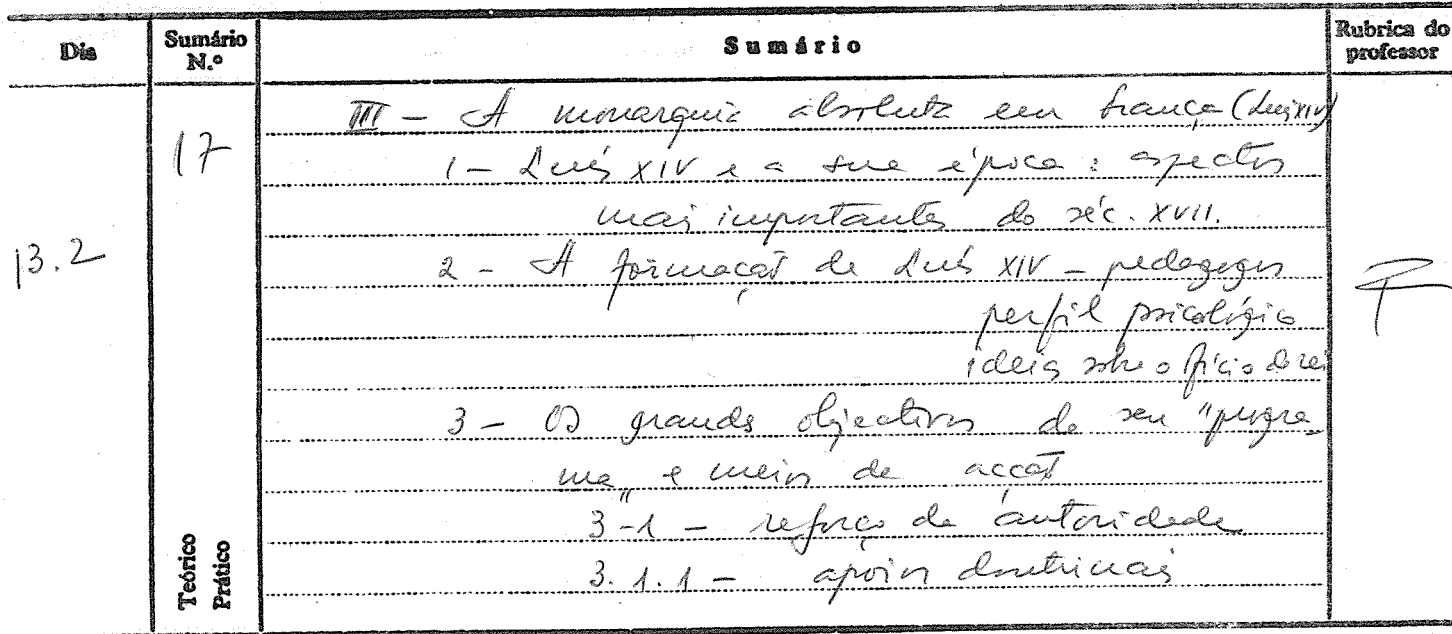 Dia
Sumário N.º
Sumário
Rubrica do professor
13.2
17
III - A monarquia absoluta em França (Luís XIV)
1 - Luís XIV e a sua época : aspectos
mais importantes do séc. XVII.
2 - A formação de Luís XIV - pedagogos
perfil psicológico
ideias sobre o ofício de rei
3 - Os grandes objectivos do seu "progra-
ma" e meios de acção
3-1 - reforço da autoridade
3.1.1 - apoios doutrinais
Teórico
Prático